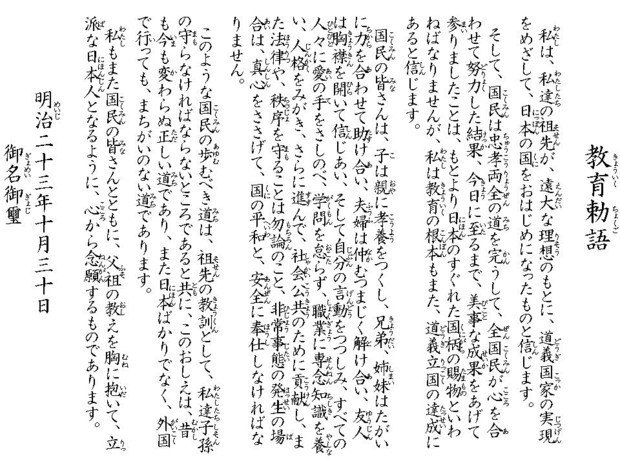 教育勅語
私は、私達の祖先が、遠大な理想のもとに、道義国家の実現
をめざして、日本の国をおはじめになったものと信じます。
そして、国民は忠孝両全の道を完うして、全国民が心を合
わせて努力した結果、今日に至るまで、美事な成果をあげて
参りましたことは、もとより日本のすぐれた国柄の賜物といわ
ねばなりませんが、私は教育の根本もまた、道義立国の達成に
あると信じます。
国民の皆さんは、子は親に孝養をつくし、兄弟、姉妹はたがい
に力を合わせて助け合い、夫婦は仲むつまじく解け合い、友人
は胸襟を開いて信じあい、そして自分の言動をつつしみ、すべての
人々に愛の手をさしのべ、学問を怠らず、職業に専念知識を養
い、人格をみがき、さらに進んで、社会公共のために貢献し、ま
た法律や、秩序を守ることは勿論のこと、非常事態の発生の場
合は、真心をささげて、国の平和と、安全に奉仕しなければな
りません。
このような国民の歩むべき道は、祖先の教訓として、私達子孫
の守らなければならないところであると共に、このおしえは、昔
も今も変わらぬ正しい道であり、また日本ばかりでなく、外国
で行っても、まちがいのない道であります。
私もまた国民の皆さんとともに、父祖の教えを胸に抱いて、立
派な日本人となるように、心から念願するものであります。
明治二十三年十月三十日
御名御璽